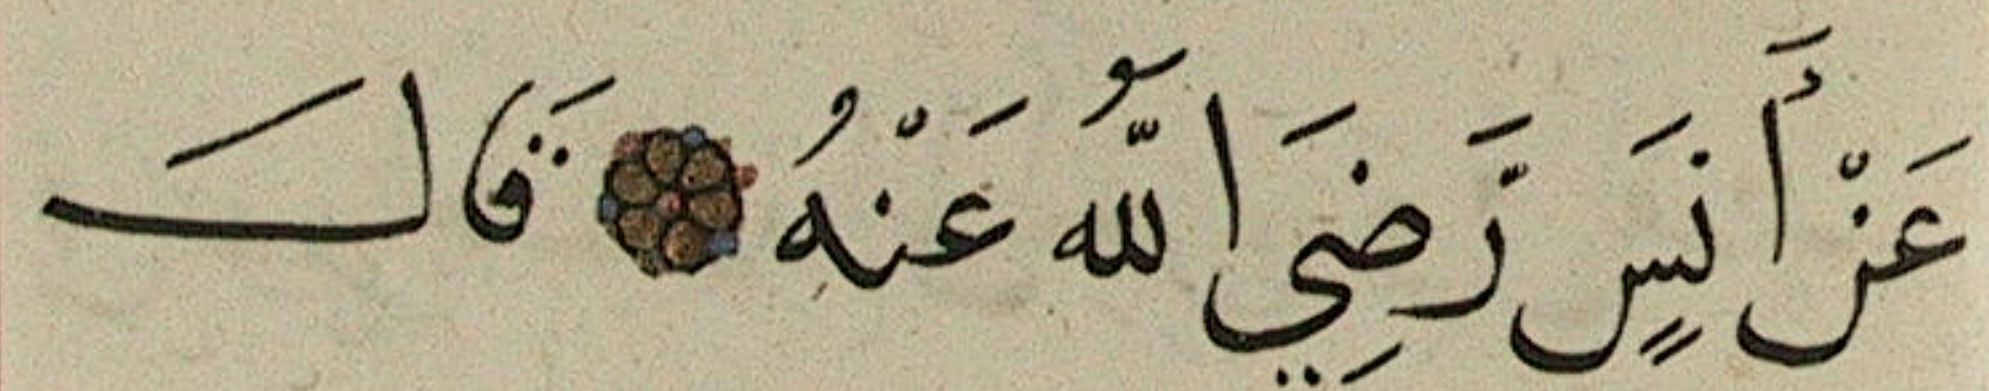 عَنْ أَنَسٍ رَّضِيَ اللّٰهُ عَنْهُ قَالَ